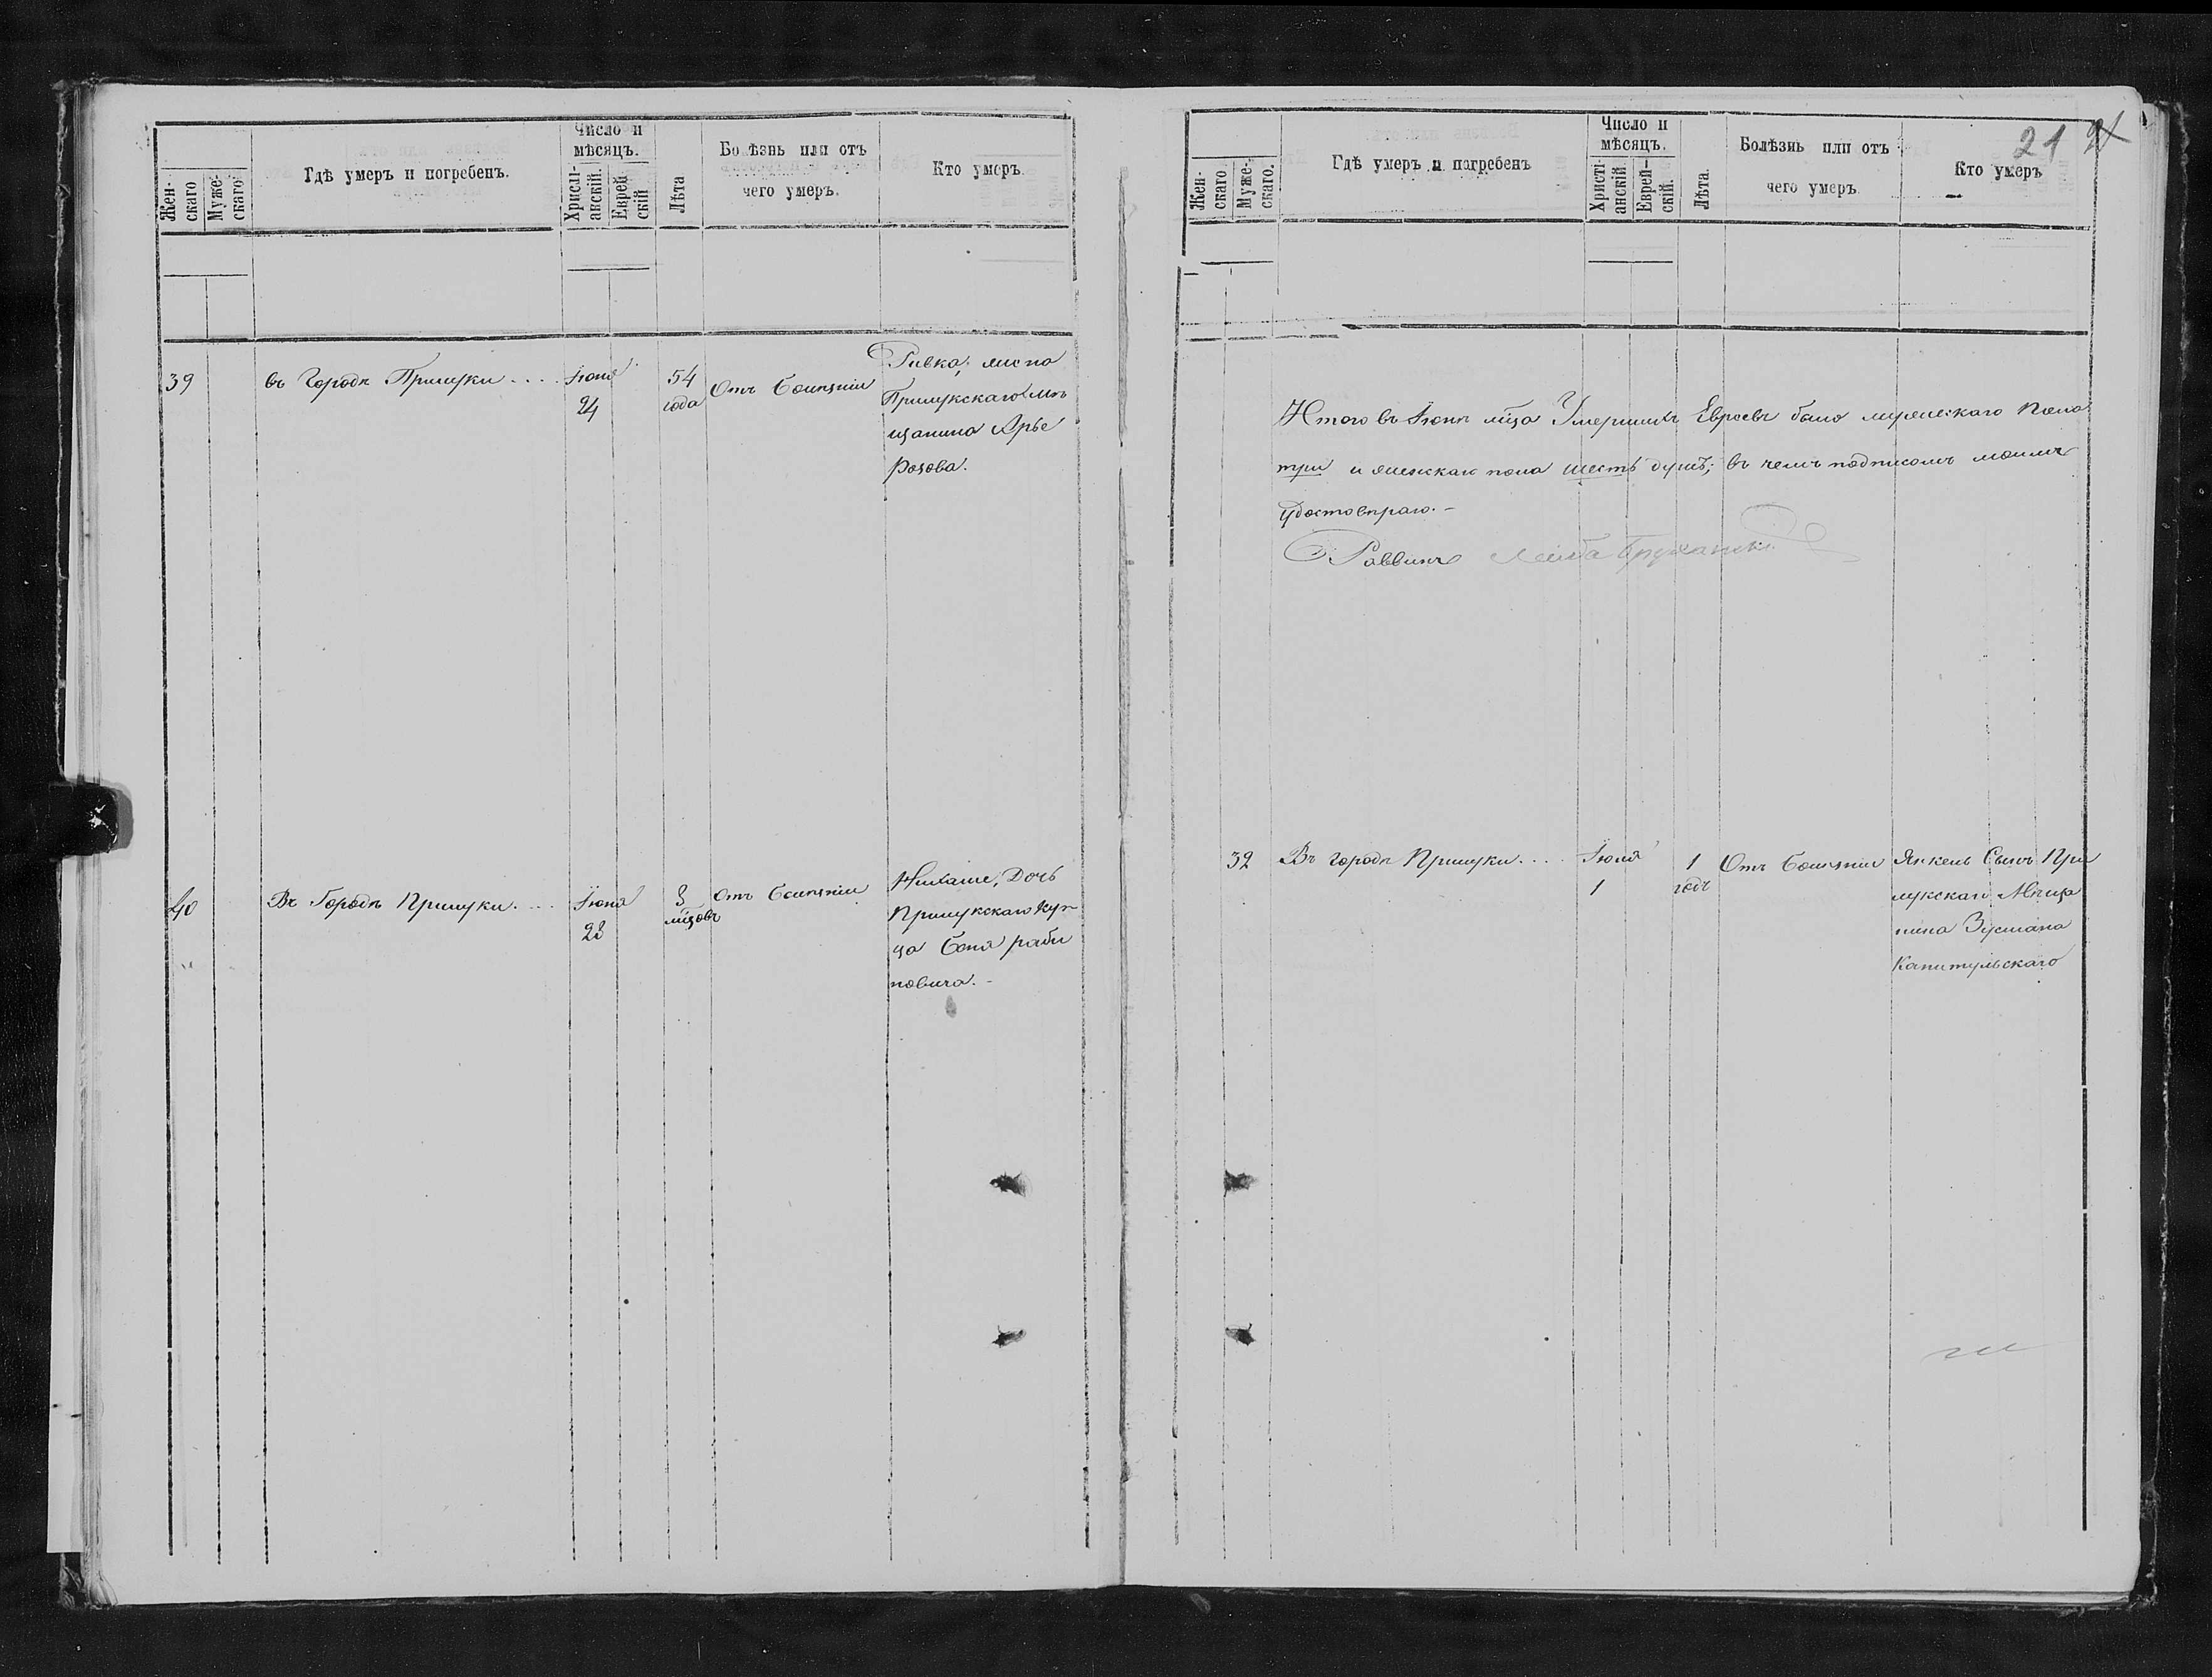 Жен-
скаго
Муже-
скаго
Гдѣ умеръ и погребенъ.
Число и
мѣсяцъ.
Христi-
анскій.
Еврей
скій
Лѣта
Болѣзнь или отъ
чего умеръ.
Кто умеръ.
39
въ Городѣ Прилуки . . . .
Іюня
24
54
года
Отъ болѣзни
Ривка, жена
Прилукскаго Мѣ
щанина Арье
Розова.
40
Въ Городѣ Прилуки. . . .
Іюня
28
мѣсяцовъ
Отъ болѣзни
Дочь
Прилукскаго Куп
ца Бена раби
новича. -
21
Жен-
скаго
Муже-
скаго.
Гдѣ умеръ и погребенъ
Число и
мѣсяцъ.
Христі-
анскій
Еврей-
скій.
Лѣта.
Болѣзнь или отъ
чего умеръ.
Кто умеръ
Итого въ Іюнѣ мца Умершихъ Евреевъ было мужескаго пола
три и женскаго пола шесть душъ; въ чемъ подписомъ моимъ
удостовѣряю. -
Раввинъ Лейба
32
Въ городѣ Прилуки . . . .
Іюля
1
1
годъ
Отъ болѣзни
Янкель Сынъ При
лукскаго Мѣща
нина Зусмана
Капитульскаго